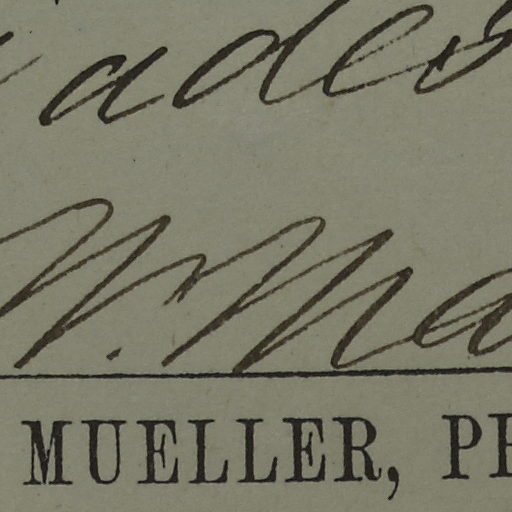 ades
W. Ma
MUELLER, PH